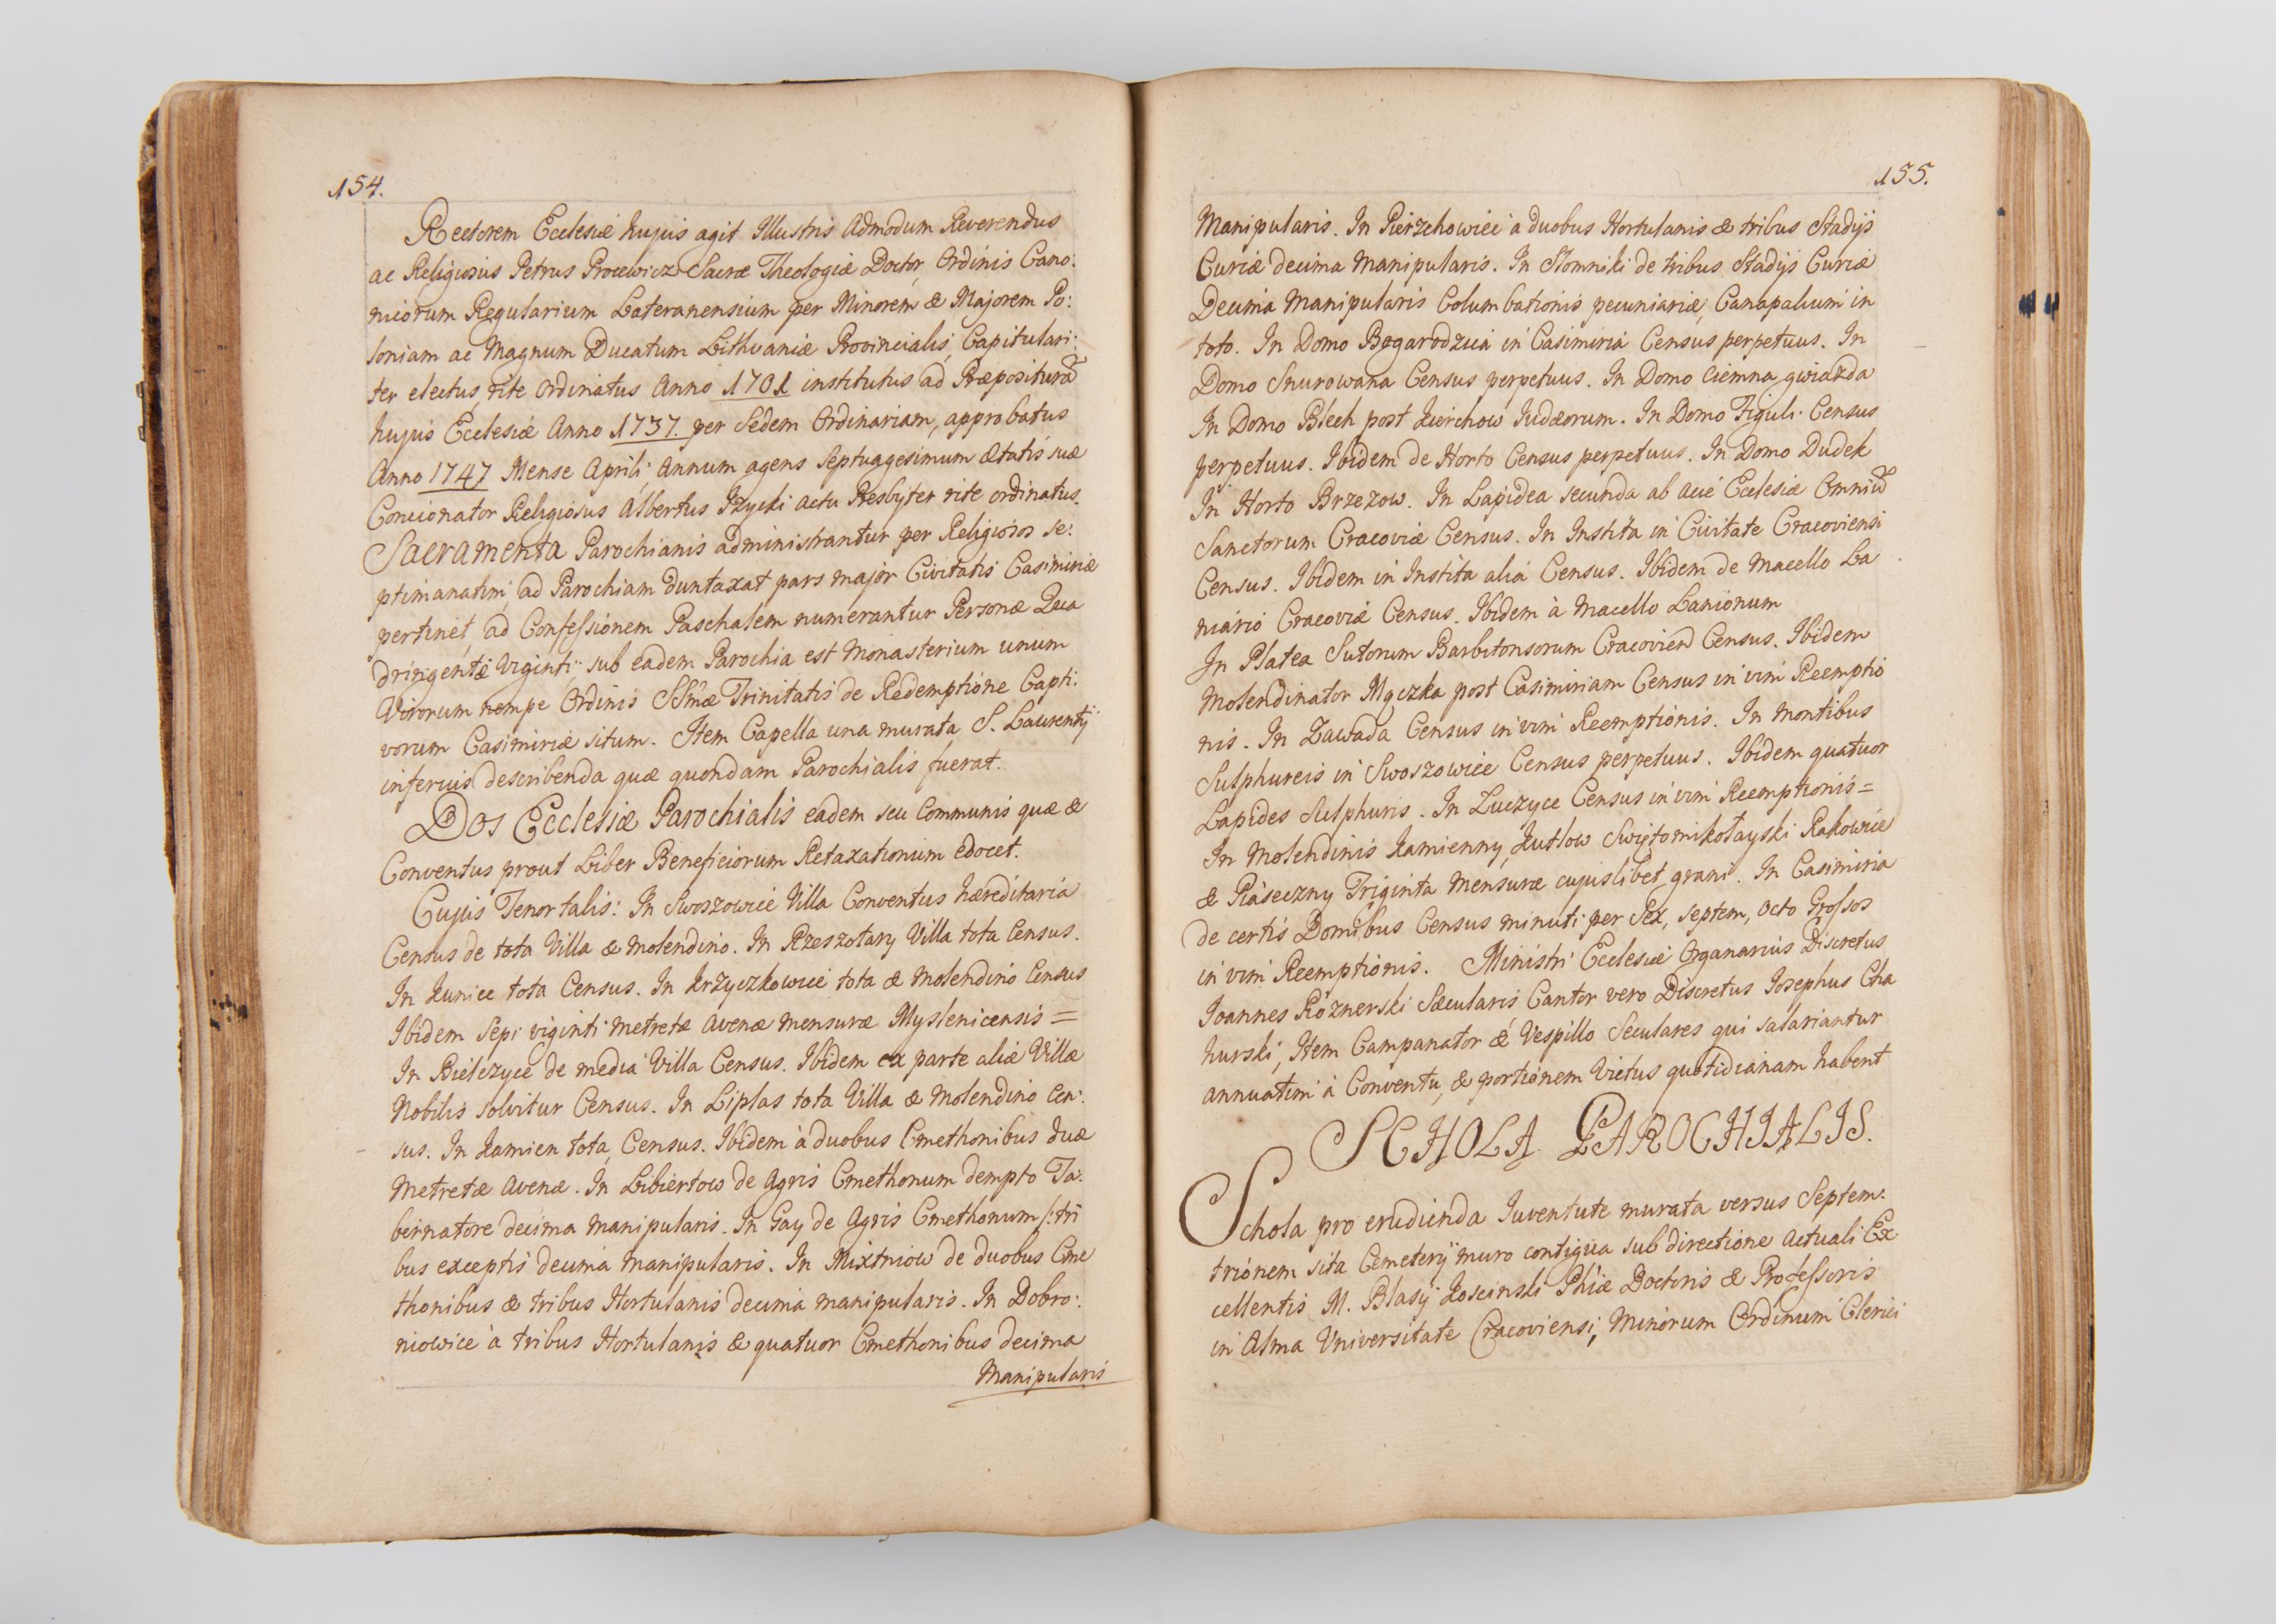 154.
Rectorem Ecclesiæ hujus agit Illustris Admodum Reverendus
ac Religiosus Petrus Procewicz Sacræ Theologiæ Doctor, Ordinis Cano:
nicorum Regularium Lateranensium per Minorem & Majorem Po:
loniam ac Magnum Ducatum Lithvaniæ Provincialis, Capitulari:
ter electus, rite Ordinatus Anno 1701 institutus ad Præpositurã
hujus Ecclesiæ Anno 1737. per Sedem Ordinariam, approbatus
Anno 1747 Mense Aprili, Annum agens Septuagesimum Ætatis suæ
Concionator Religiosus Albertus Izycki actu Presbyter rite ordinatus.
Sacramenta Parochianis administrantur per Religiosos se:
ptimanatim, ad Parochiam duntaxat pars major Civitatis Casimiriæ
pertinet, ad Confessionem Paschalem numerantur Personæ Qua
dringentæ Viginti, sub eadem Parochia est Monasterium unum
Virorum nempe Ordinis SSmæ Trinitatis de Redemptione Capti:
vorum Casimiriæ situm. Item Capella una murata S. Laurentij
inferius describenda quæ quondam Parochialis fuerat.
Dos Ecclesiæ Parochialis eadem seu Communis quæ &
Conventus prout Liber Beneficiorum Retaxationum edocet.
Cujus Tenor talis: In Swoszowice Villa Conventus hæreditaria
Census de tota Villa & Molendino. In Rzeszotary Villa tota Census.
In Kunice tota Census. In Krzyczkowice tota & Molendino Census
Ibidem Sepi viginti metretæ avenæ mensuræ Myslenicensis =
In Bielczyce de media Villa Census. Ibidem ex parte aliæ Villæ
Nobilis solvitur Census. In Liplas tota Villa & Molendino Cen:
sus. In Kamien tota, Census. Ibidem à duobus Cmethonibus duæ
Metretæ Avenæ. In Libiertow de Agris Cmethonum dempto Ta:
bernatore decima manipularis. In Gay de Agris Cmethonum /: tri
bus exceptis decima manipularis. In Mixtniow de duobus Cme
thonibus & tribus Hortulanis decima manipularis. In Dobro:
niowice à tribus Hortulanis & quatuor Cmethonibus decima
Manipularis
155.
Manipularis. In Pierzchowice à duobus Hortulanis & tribus Stadijs
Curiæ decima Manipularis. In Słomniki de tribus Stadijs Curiæ
Decima Manipularis Columbationis pecuniariæ, Canapalium in
toto. In Domo Bogarodzica in Casimiria Census perpetuus. In
Domo Snurowana Census perpetuus. In Domo Ciemna gwiazda
In Domo Blech post Kierchow Judæorum. In Domo Figuli Census
perpetuus. Ibidem de Horto Census perpetuus. In Domo Dudek
In Horto Brzezow. In Lapidea secunda ab acie Ecclesiæ Omniũ
Sanctorum Cracoviæ Census. In Instita in Civitate Cracoviensi
Census. Ibidem in Instita alia Census. Ibidem de Macello La
niario Cracoviæ Census. Ibidem à Macello Lanionum
In Platea Sutorum Barbitonsorum Cracovien Census. Ibidem
Molendinator Mączka post Casimiriam Census in vim Reemptio
nis. In Zawada Census in vim Reemptionis. In Montibus
Sulphureis in Swoszowice Census perpetuus. Ibidem quatuor
Lapides Sulphuris. In Luczyce Census in vim Reemptionis =
In Molendinis Kamienny, Kutlow Swiętomikołayski Rakowice
& Piaseczny Triginta Mensuræ cujuslibet grani. In Casimiria
de certis Domibus Census minuti per Sex, septem, octo Grossos
in vim Reemptionis. Ministri Ecclesiæ Organarius Discretus
Joannes Róznerski Sæcularis Cantor vero Discretus Josephus Cha
hurski, Item Campanator & Vespillo Seculares qui salariantur
annuatim à Conventu, & portionem Victus quotidianam habent
SCHOLA PAROCHIALIS.
Schola pro erudienda Juventute murata versus Septem:
trionem sita Cemeterij muro contigua sub directione actuali Ex
cellentis M. Blasij Koscinski Phiæ Doctoris & Professoris
in Alma Universitate Cracoviensi, Minorum Ordinum Clerici